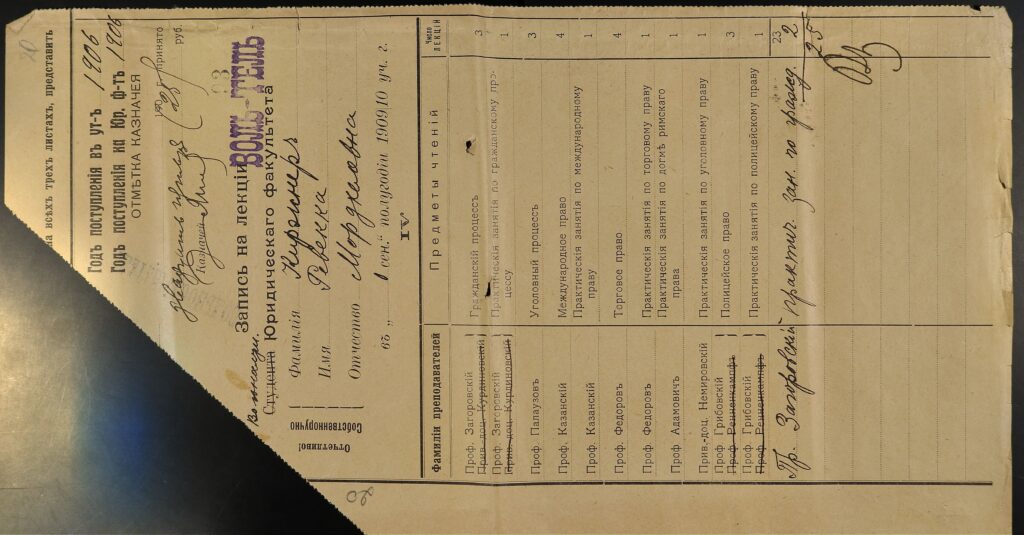 на всѣхъ трехъ листахъ, представить
Годъ поступленія въ ут-ъ 1906
Годъ поступленія на Юр. ф-тъ 1906
ОТМѢТКА КАЗНАЧЕЯ
190 г. принято
(25) руб.
Казначей
23
Запись на лекціи ВОЛЬ-ТЕЛЬ
Студента Юридическаго факультета
Отчетливо!
Собственноручно
Фамилія Киржнеръ
Имя Ревекка
Отчество Мордковна
въ „1 сен.“ полугодіи 1909/10 уч. г.
IV
Фамиліи преподавателей Предметы чтеній Число лекцій
Проф. Загоровскій Гражданскій процессъ 3
Прив.-доц. Курдиновскій
Проф. Загоровскій Практическія занятія по гражданскому про- 1
Прив.-доц. Курдиновскій цессу
Проф. Палаузовъ Уголовный процессъ 3
Проф. Казанскій Международное право 4
Проф. Казанскій Практическія занятія по международному 1
праву
Проф. Федоровъ Торговое право 4
Проф. Федоровъ Практическія занятія по торговому праву 1
Проф. Адамовичъ Практическія занятія по догмѣ римскаго 1
права
Прив.-доц. Немировскій Практическія занятія по уголовному праву 1
Проф. Грибовскій Полицейское право 3
Проф. Ренненкампфъ
Проф. Грибовскій Практическія занятія по полицейскому праву 1
Проф. Ренненкампфъ
23
Пр. Загоровскій практич. зан. по гражд. 2
25
20